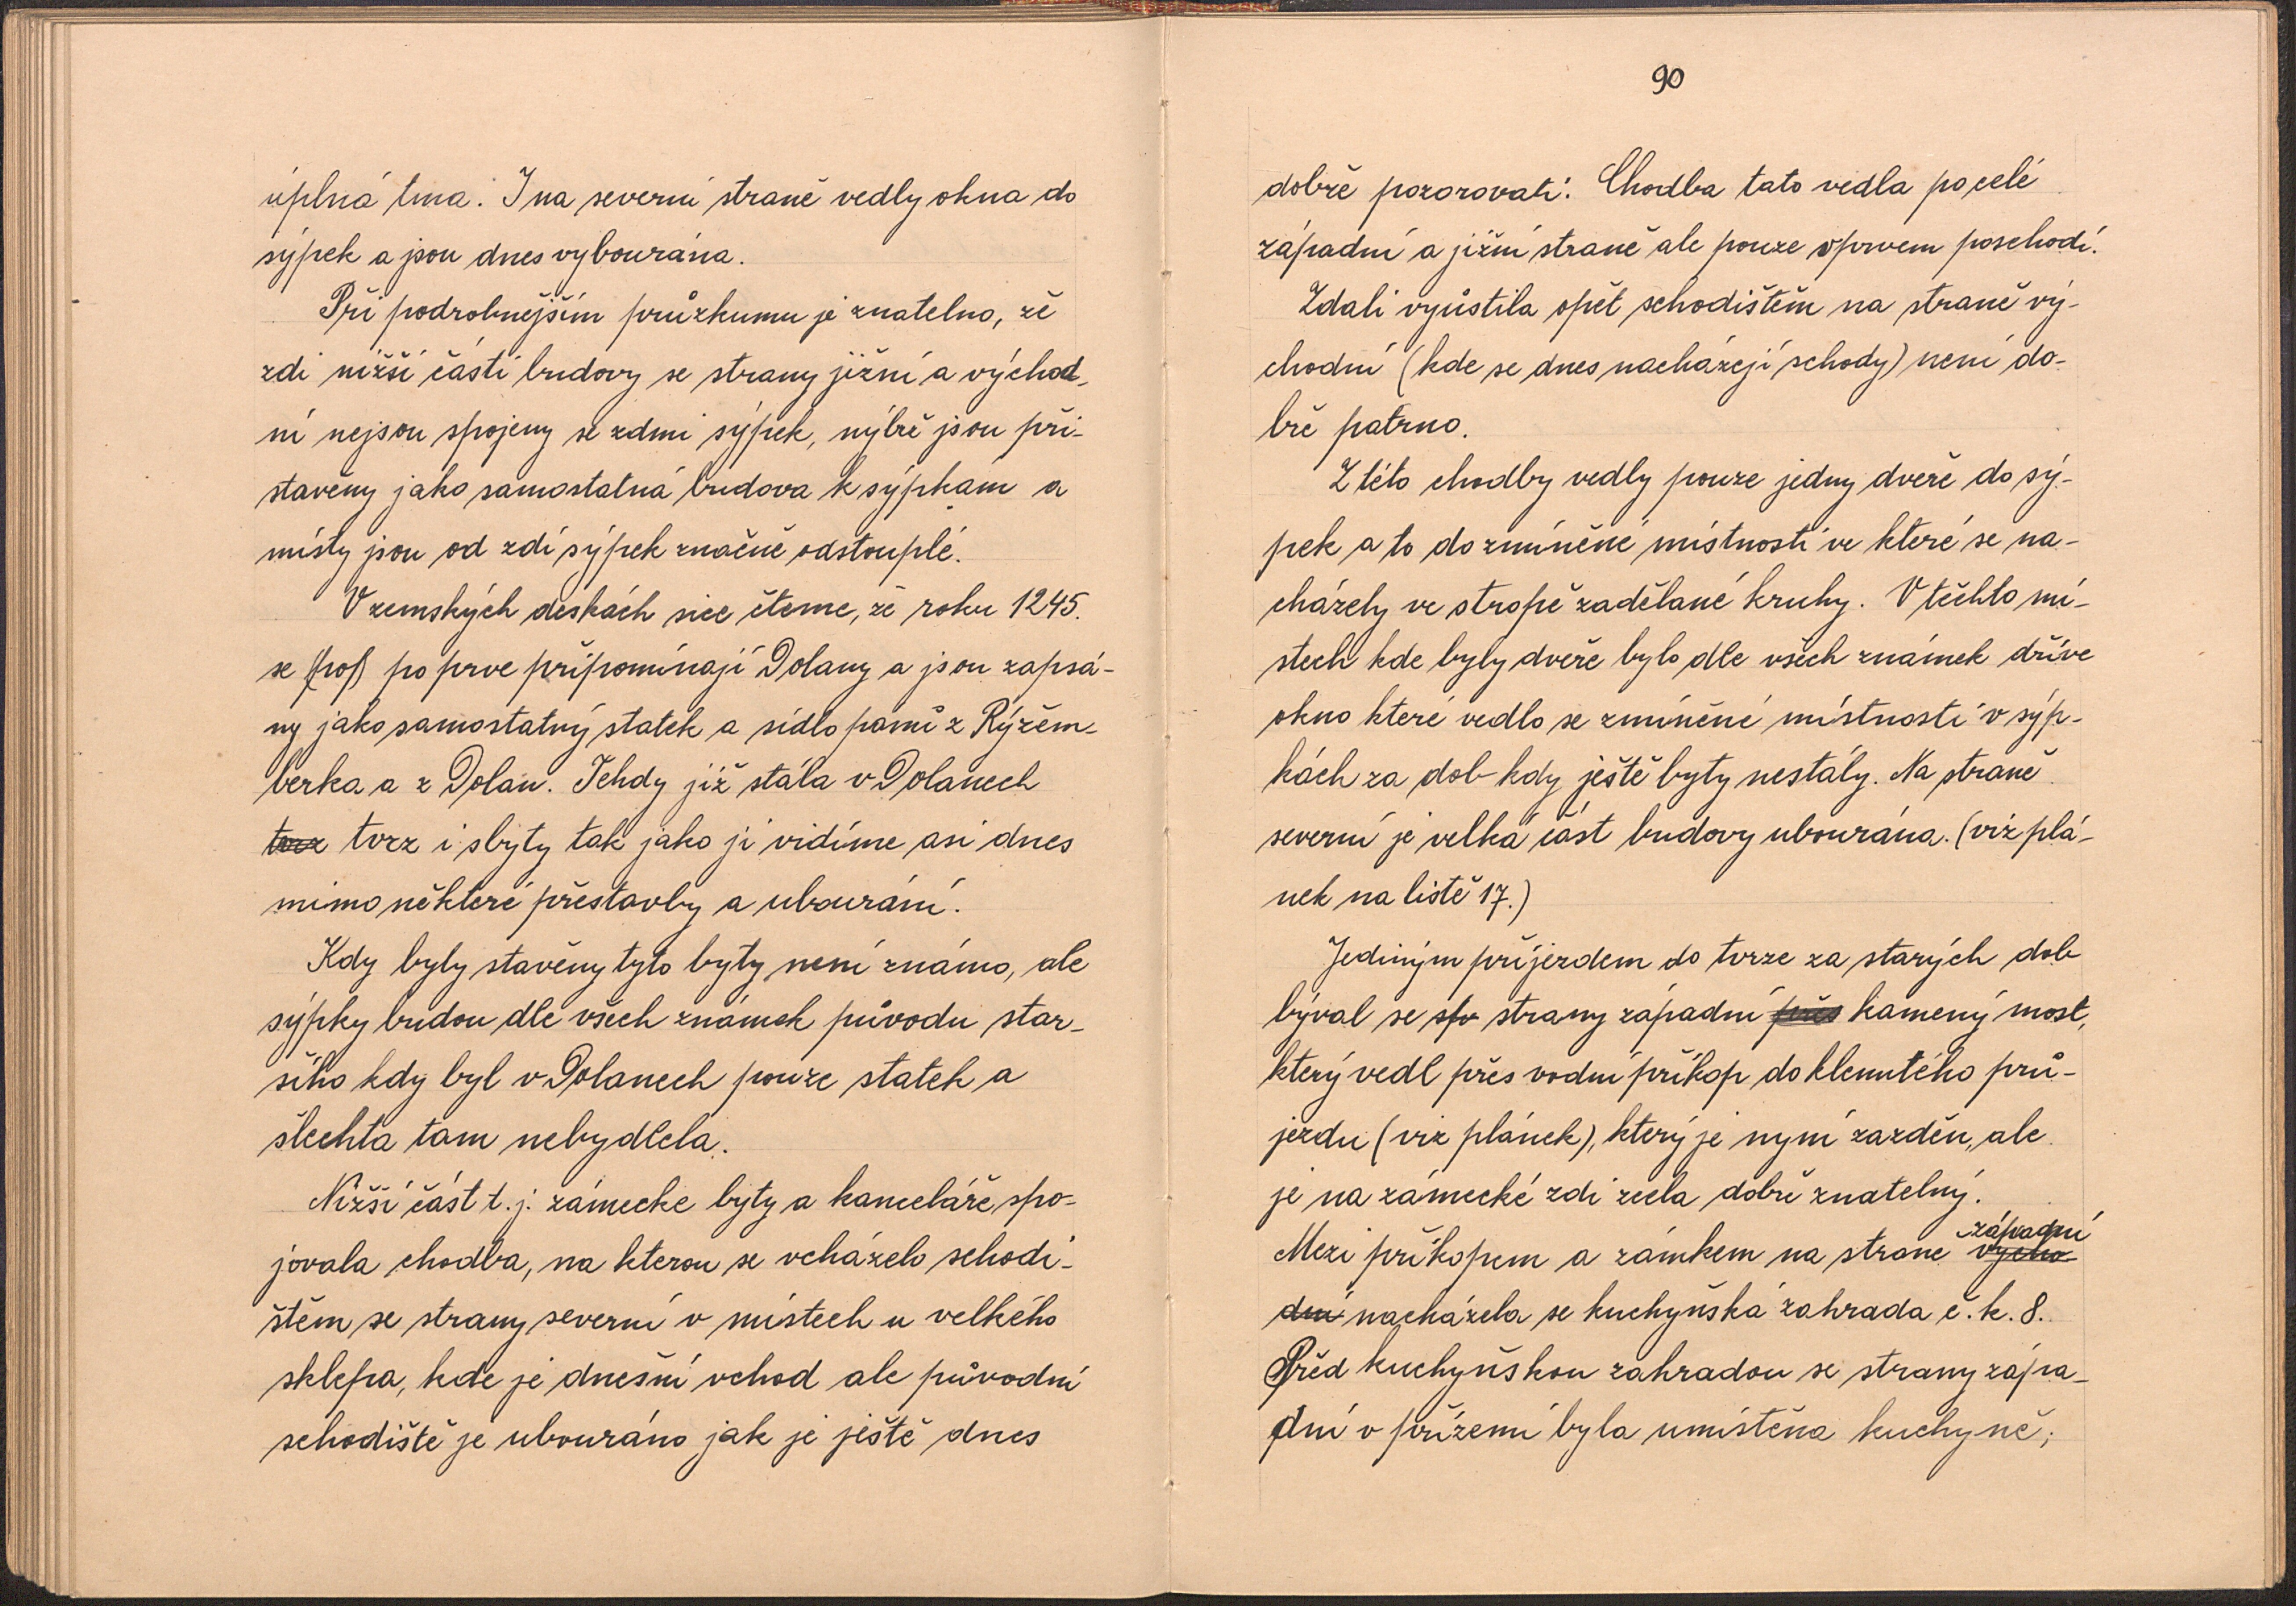 úplná tma. I na severní straně vedly okna do
sýpek a jsou dnes vybourána.
Při podrobnějším průzkumu je znatelno, že
zdi nižší části budovy se strany jižní a východ-
ní nejsou spojeny se zdmi sýpek, nýbrž jsou při-
stavěny jako samostatná budova k sýpkám a
místy jsou od zdí sýpek značně odstouplé.
V zemských deskách sice čteme, že roku 1245.
se (po) po prve připomínají Dolany a jsou zapsá-
ny jako samostatný statek a sídlo pánů z Rýzem-
berka a z Dolan. Tehdy již stála v Dolanech
tvrz tvrz i s byty tak jako ji vidíme asi dnes
mimo některé přestavby a ubourání.
Kdy byly stavěny tyto byty není známo, ale
sýpky budou dle všech známek původu star-
šího kdy byl v Dolanech pouze statek a
šlechta tam nebydlela.
Nižší část t.j. zámecké byty a kanceláře spo-
jovala chodba, na kterou se vcházelo schodi-
štěm se strany severní v místech u velkého
sklepa, kde je dnešní vchod ale původní
schodiště je ubouráno jak je ještě dnes
90
dobře pozorovati. Chodba tato vedla po celé
západní a jižní straně ale pouze v prvem poschodí.
Zdali vyústila opět schodištěm na straně vý-
chodní (kde se dnes nacházejí schody) není do-
bře patrno.
Z této chodby vedly pouze jedny dveře do sý-
pek a to do zmíněné místnosti ve které se na-
cházely ve stropě zadělané kruhy. V těchto mí-
stech kde byly dveře bylo dle všech známek dříve
okno které vedlo se zmíněné místnosti v sýp-
kách za dob kdy ještě byty nestály. Na straně
severní je velká část budovy ubourána. (viz plá-
nek na listě 17.)
Jediným příjezdem do tvrze za starých dob
býval se strany západní přes kamený most,
který vedl přes vodní příkop do klenutého prů-
jezdu (viz plánek), který je nyní zazděn, ale
je na zámecké zdi zcela dobře znatelný.
západní
Mezi příkopem a zámkem na strane výcho-
dní nacházela se kuchyňská zahrada č.k. 8.
Před kuchyňskou zahradou se strany zápa-
dní v přízemí byla umístěna kuchyně;